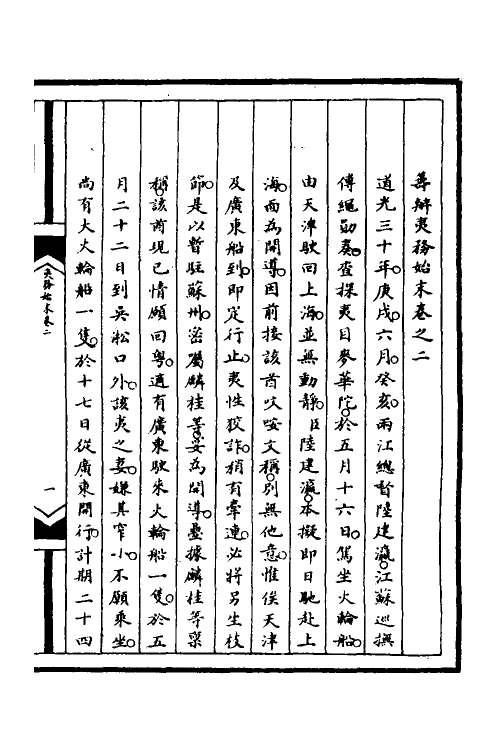 籌辦夷務始末卷之二
道光三十年。庚戌六月。癸亥。兩江總督陸建瀛。江蘇巡撫
傅繩勛奏。查探夷目麥華陀。於五月十六日。駕坐火輪船。
由天津駛回上海。並無動靜。臣陸建瀛。本擬即日馳赴上
海。面為開導。因前接該酋咬㖠文稱。別無他意。惟俟天津
及廣東船到。即定行止。夷性狡詐。稍有牽連。必將另生枝
節。是以暫駐蘇州。密屬麟桂等。妥為開導。疊據麟桂等稟
稱。該酋現已情願回粵。適有廣東駛來火輪船一隻。於五
月二十二日到吳淞口外。該夷之妻。嫌其窄小。不願乘坐。
尚有大火輪船一隻。於十七日從廣東開行。計期二十四
夷務始末卷二
一